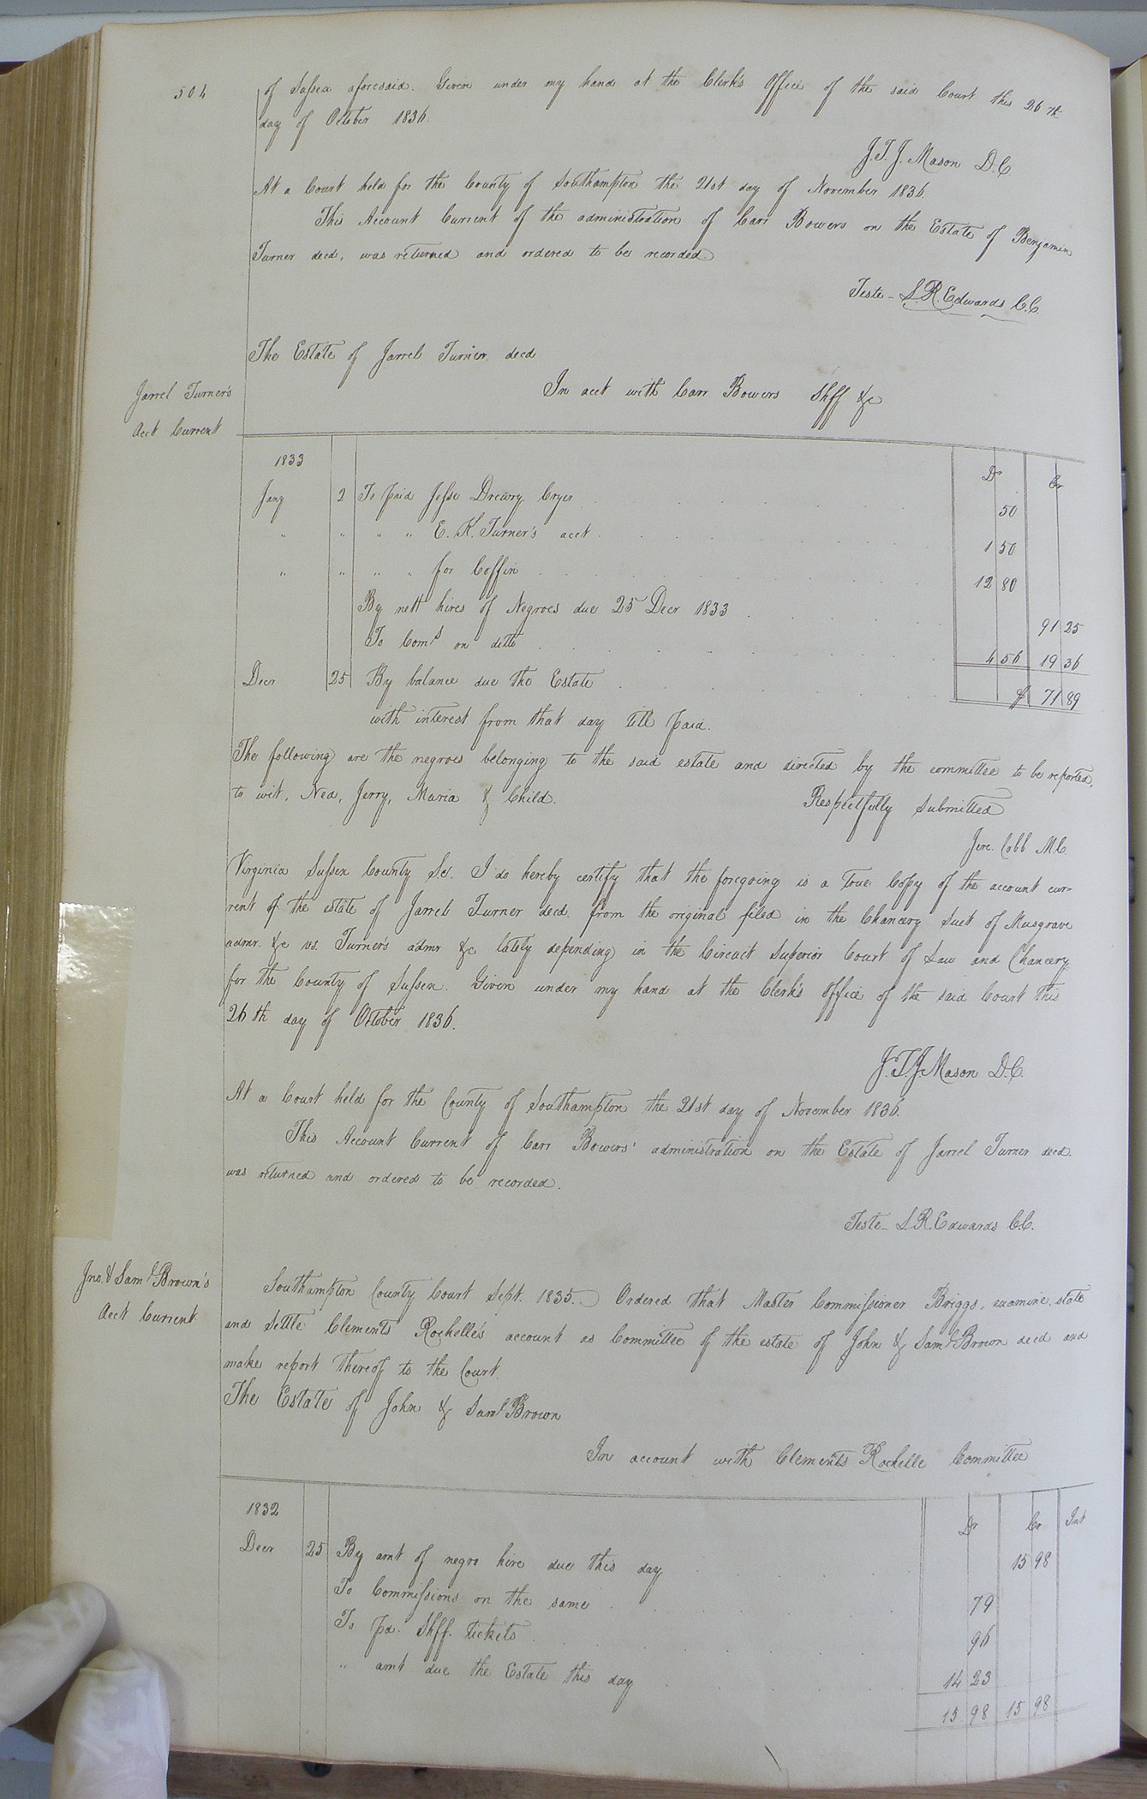 504
of Sussex aforesaid. Given under my hand at the Clerk's Office of the said Court this 26th
day of October 1836.
J.T.J. Mason D.C
At a Court held for the County of Southampton the 21st day of November 1836.
This Account Current of the administration of Carr Bowers on the Estate of Benjamin
Turner decd, was returned and ordered to be recorded
Teste - L.R. Edwards C.C.
The Estate of Jarrel Turner decd
In acct with Carr Bowers Shff &c
Jarrel Turner's
Acct Current
1833 Dr Cr
Jany 2 To paid Jesse Drewry Cryer 50
" " " " E. K. Turner's acct 1 50
" " " " for Coffin 12 80
By nett hires of Negroes due 25 Decr 1833 91 25
To Coms on ditto 4 56 19 36
Decr 25 By balance due the Estate $ 71 89
with interest from that day till paid.
The following are the negroes belonging to the said estate and directed by the committee to be reported,
to wit, Ned, Jerry, Maria & Child.
Respectfully Submitted
Jere. Cobb M.C
Virginia Sussex County Sct. I do hereby certify that the foregoing is a true Copy of the account cur-
rent of the estate of Jarrel Turner decd. from the original filed in the Chancery Suit of Musgrave
admr. &c vs. Turner's admr &c lately depending in the Circuit Superior Court of Law and Chancery
for the County of Sussex. Given under my hand at the Clerk's office of the said Court this
26th day of October 1836.
J.T.J. Mason D.C.
At a Court held for the County of Southampton the 21st day of November 1836.
This Account Current of Carr Bowers' administration on the Estate of Jarrel Turner decd.
was returned and ordered to be recorded.
Teste - L.R. Edwards C.C.
Jno. & Saml Brown's
Acct Current
Southampton County Court Sept. 1835. Ordered that Master Commissioner Briggs, examine, state
and settle Clements Rochelle's account as Committee of the estate of John & Saml Brown decd and
make report thereof to the Court.
The Estate of John & Saml Brown
In account with Clements Rochelle Committee
1832 Dr Cr Int
Decr 25 By amt of negro hire due this day 15 98
To Commissions on the same 79
To pd. Shff. tickets 96
" amt due the Estate this day 14 23
15 98 15 98